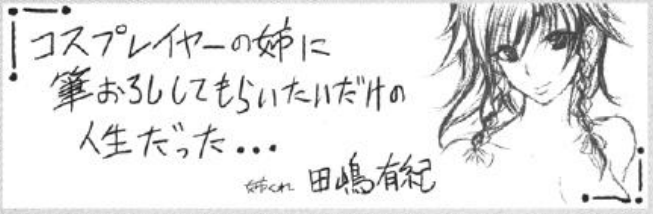 コスプレイヤーの姉に
筆おろししてもらいたいだけの
人生だった...
姉くれ 田嶋有紀